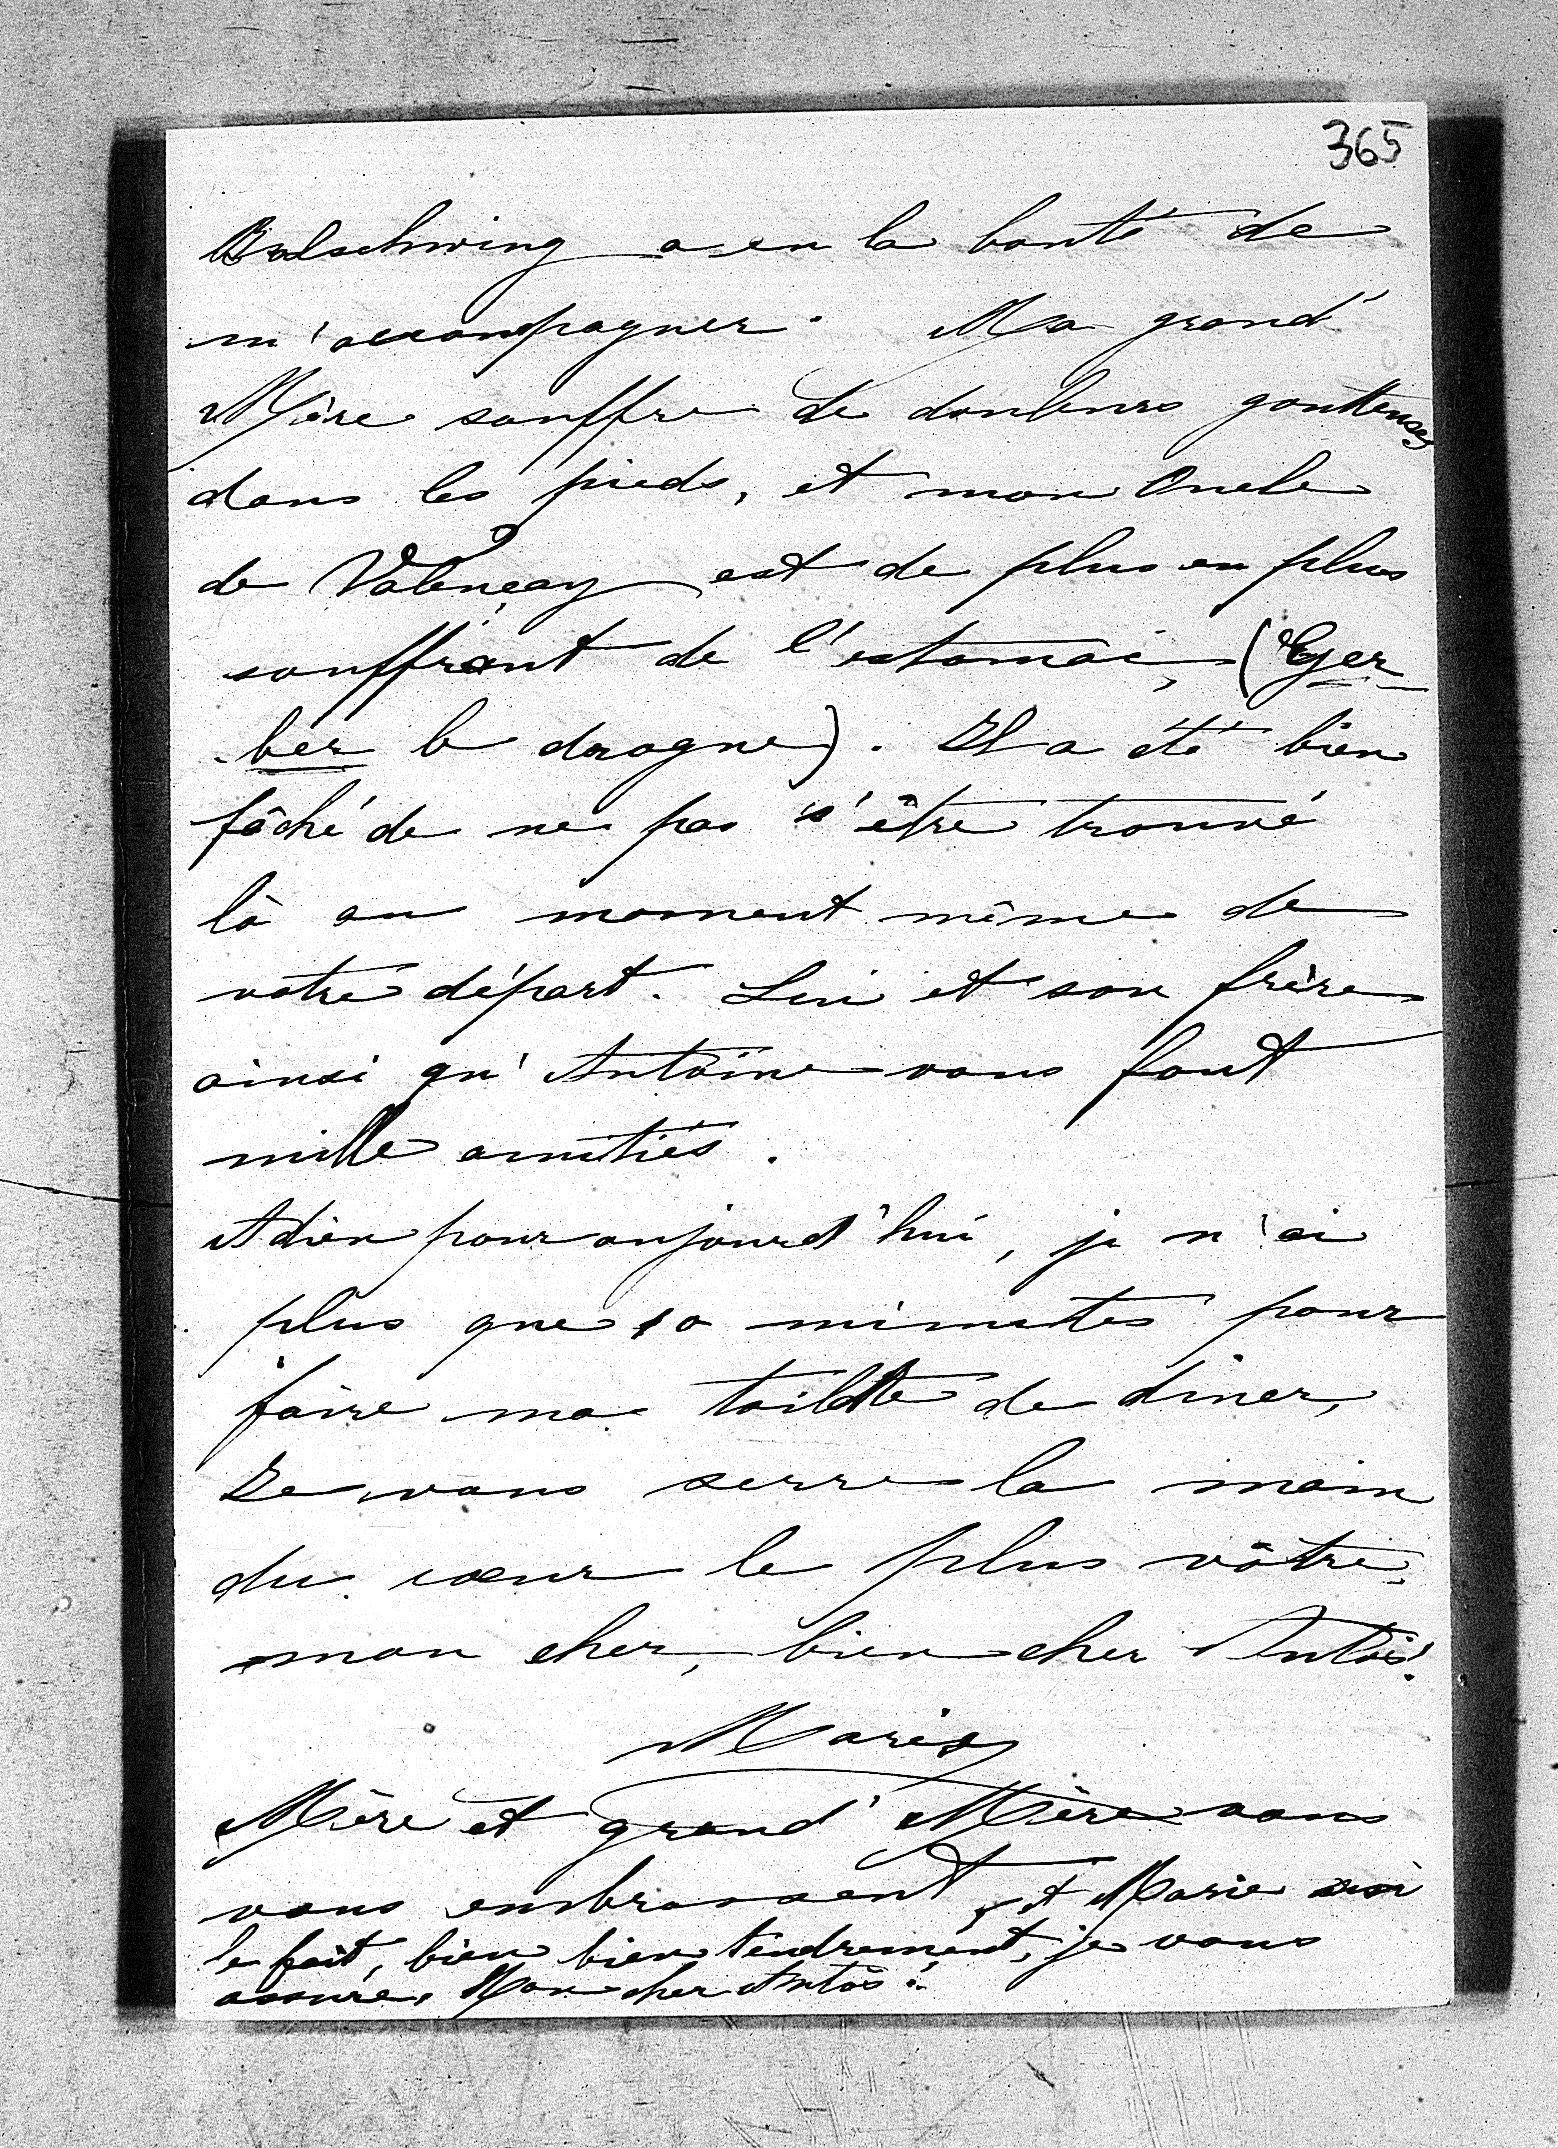 365
Bulschwing a eu la bonté de
m'accompagner. Ma grand'
Mère souffre de douleurs goutteuses
dans les pieds, et mon Oncle
de Valençay est de plus en plus
souffrant de l'estomac, (Ger-
ber le drogue). Il a été bien
fâché de ne pas s'être trouvé
là au moment même de
votre départ. Lui et son frère
ainsi qu'Antoine vous font
mille amitiés.
Adieu pour aujourd'hui, je n'ai
plus que 10 minutes pour
faire ma toilette de diner,
Je vous serre la main
du cœur le plus vôtre,
mon cher, bien cher Antoś!
Marie
Mère et grand'Mère vous
vous embrassent, et Marie aussi
le fait, bien bien tendrement, je vous
assure, Mon cher Antoś!